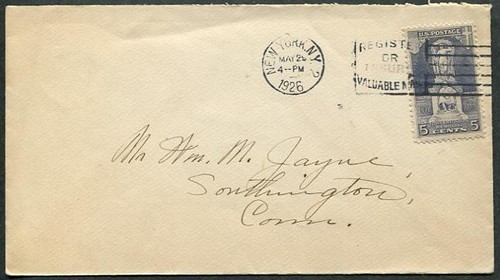 NEW YORK, N.Y. 2
MAY 29
4-PM
1926
REGISTER
OR
INSURE
VALUABLE MAIL
U.S. POSTAGE
5 CENTS 5
Mr Wm. M. Jayne,
Southington,
Conn.